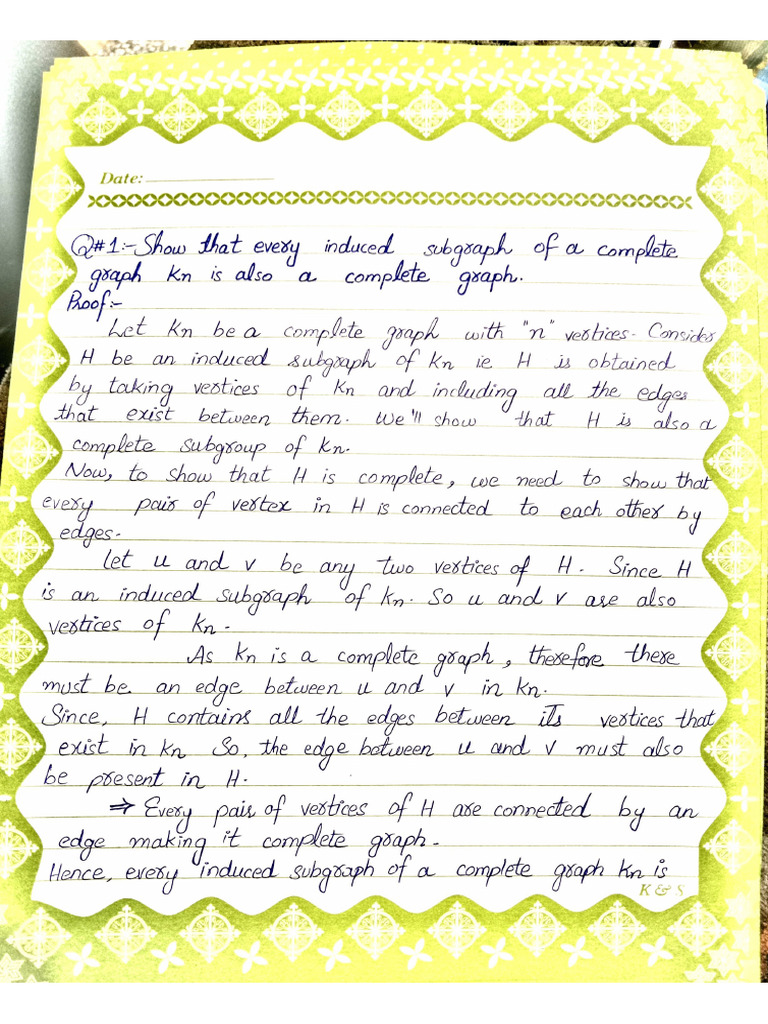 Date:
Q#1:- Show that every induced subgraph of a complete
graph Kn is also a complete graph.
Proof:-
Let Kn be a complete graph with "n" vertices. Consider
H be an induced subgraph of Kn ie H is obtained
by taking vertices of Kn and including all the edges
that exist between them. We'll show that H is also a
complete subgroup of Kn.
Now, to show that H is complete, we need to show that
every pair of vertex in H is connected to each other by
edges.
Let u and v be any two vertices of H. Since H
is an induced subgraph of Kn. So u and v are also
vertices of Kn.
As Kn is a complete graph, therefore there
must be an edge between u and v in Kn.
Since, H contains all the edges between its vertices that
exist in Kn So, the edge between u and v must also
be present in H.
⇒ Every pair of vertices of H are connected by an
edge making it complete graph.
Hence, every induced subgraph of a complete graph Kn is
K & S